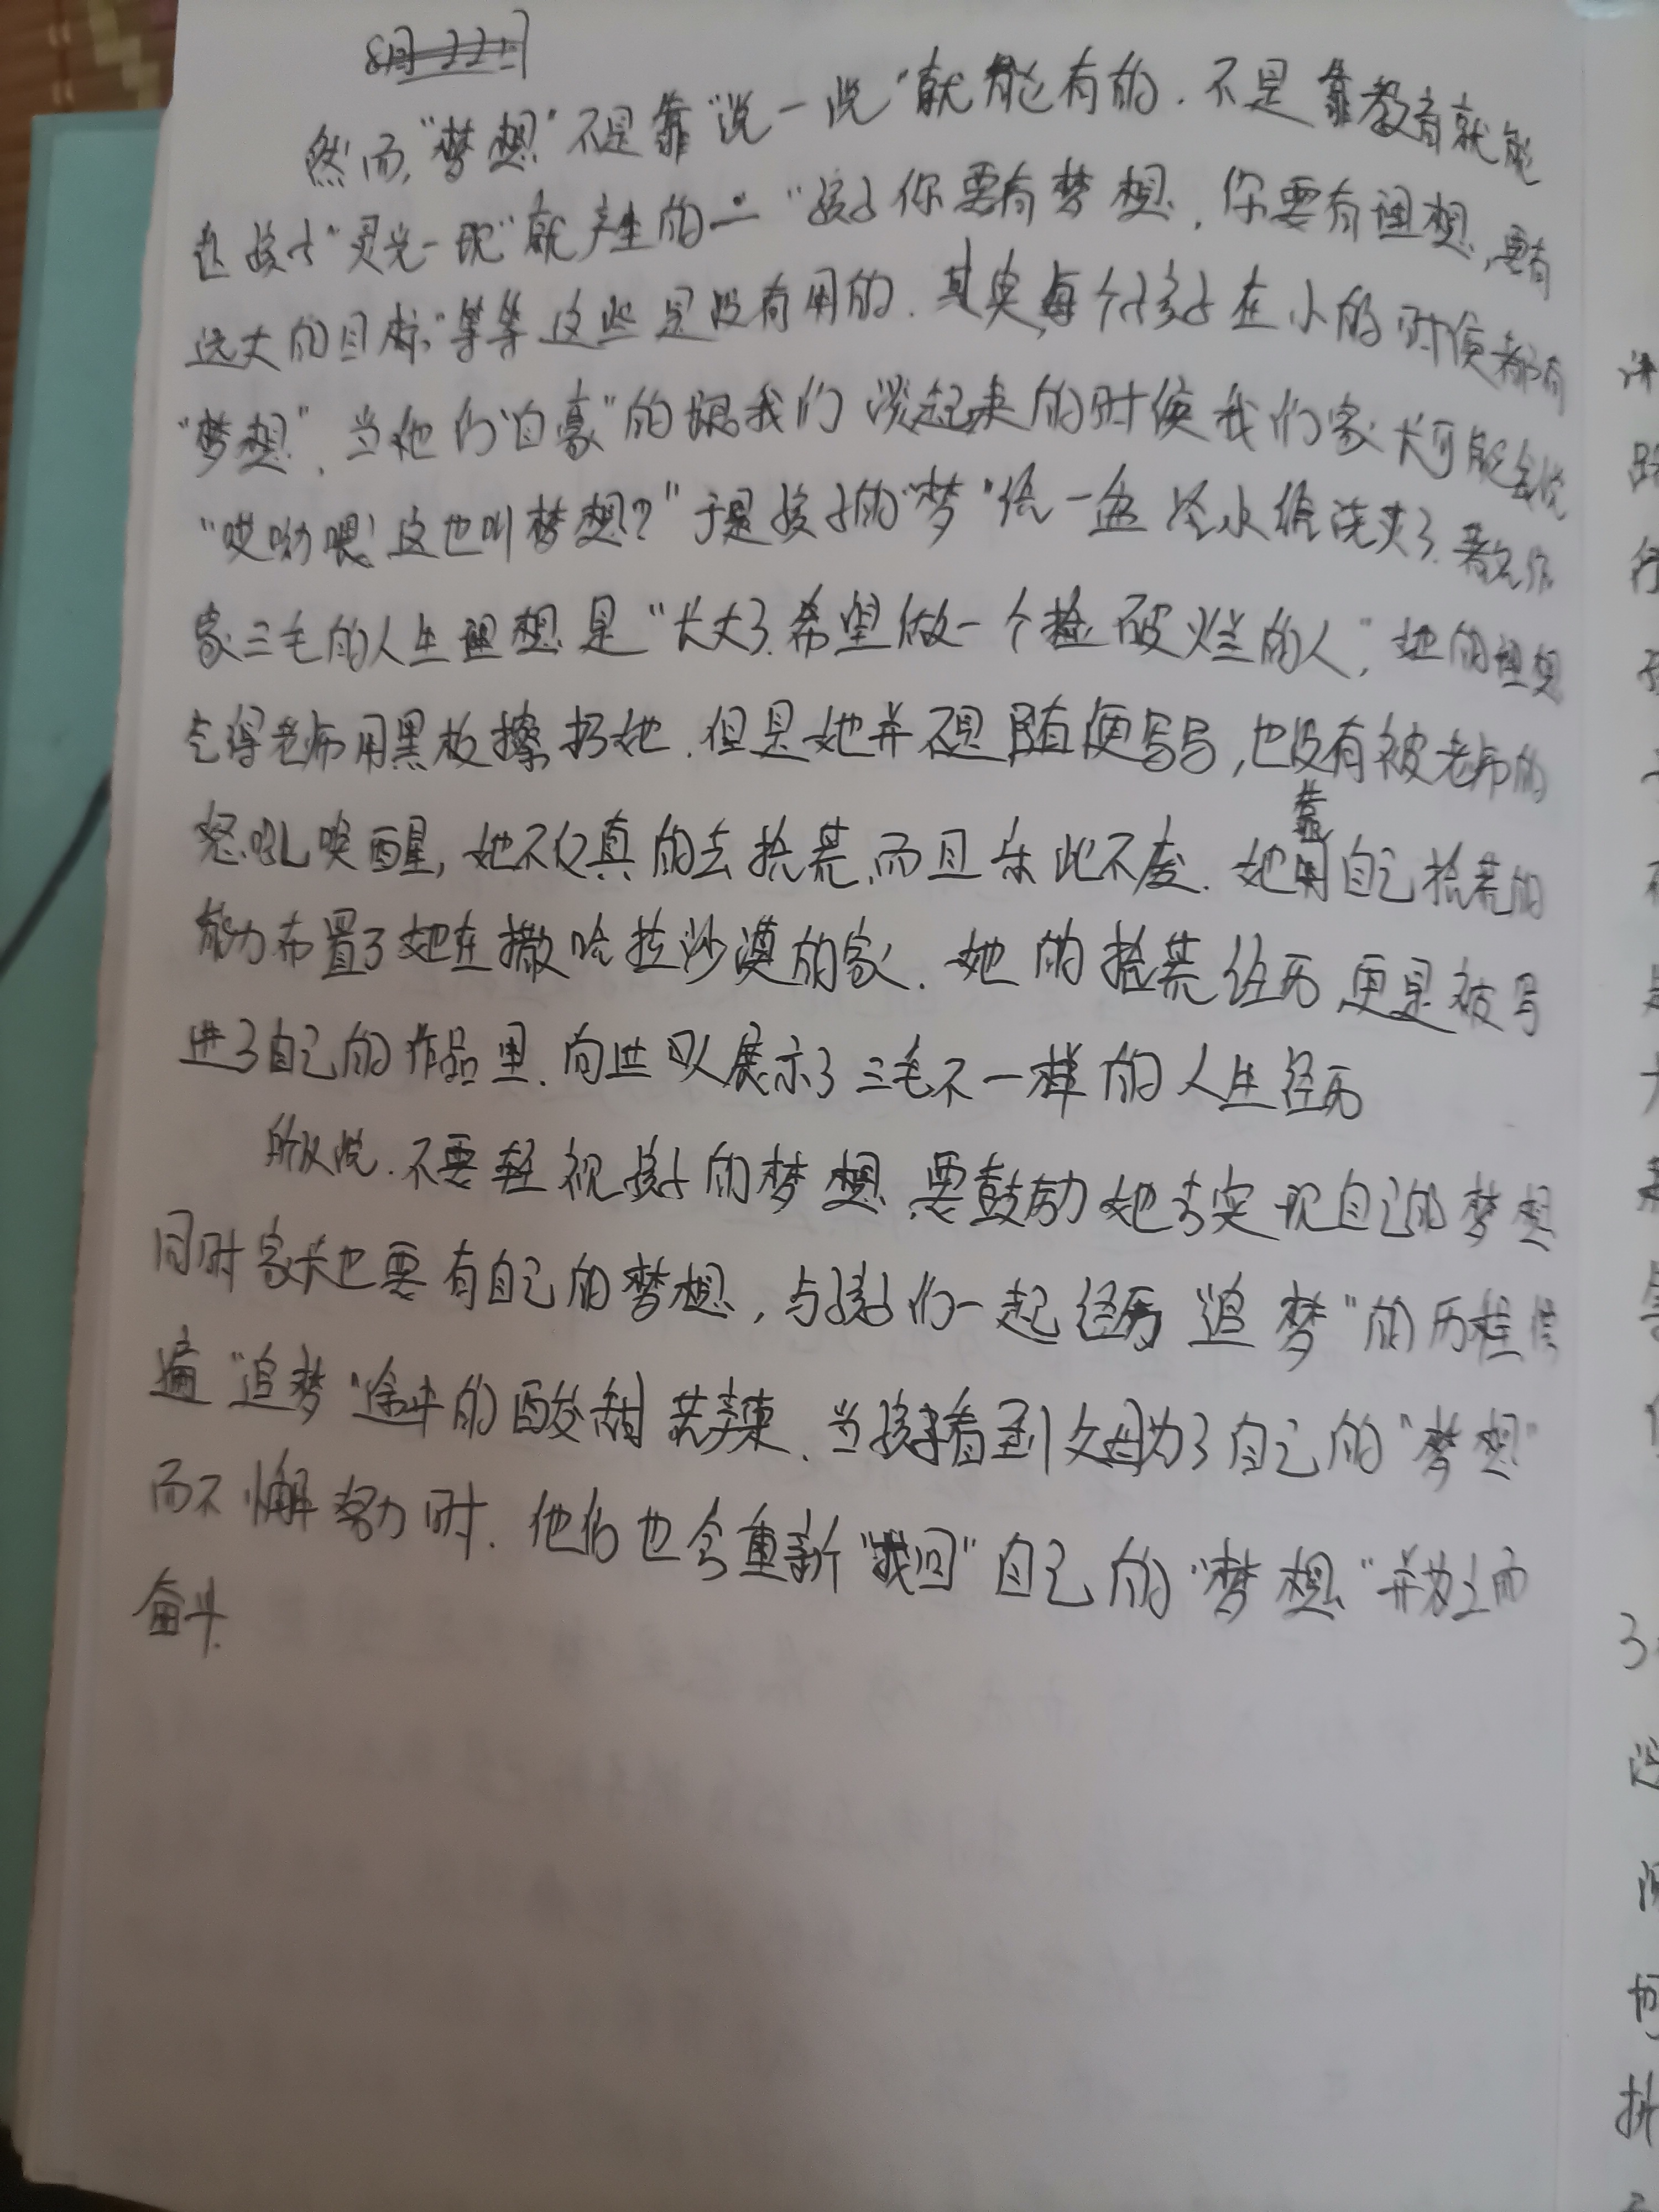 8月22日
然而,"梦想"不是靠"说一说"就能有的.不是靠教育就能
让孩子"灵光一现"就产生的 "孩子你要有梦想,你要有理想,要有
远大的目标"等等这些是没有用的.其实每个孩子在小的时候都有
"梦想",当他们"自豪"的跟我们谈起来的时候我们家长可能会说
"哎呦喂!这也叫梦想?"于是孩子的"梦"统一盆冷水给浇灭了.著名作
家三毛的人生理想是"长大了.希望做一个捡破烂的人,"她的理想
气得老师用黑板擦扔她.但是她并不是随便写写,也没有被老师的
怒吼唤醒,她不仅真的去拾荒,而且乐此不疲.她靠自己拾荒的
能力布置了她在撒哈拉沙漠的家.她的拾荒经历更是被写
进了自己的作品里.向世人展示了三毛不一样的人生经历
所以说.不要轻视孩子的梦想,要鼓励她去实现自己的梦想
同时家长也要有自己的梦想,与孩子们一起经历"追梦"的历程
遍"追梦"途中的酸甜苦辣.当孩子看到父母为了自己的"梦想"
而不懈努力时.他们也会重新"找回"自己的"梦想"并为之而
奋斗.